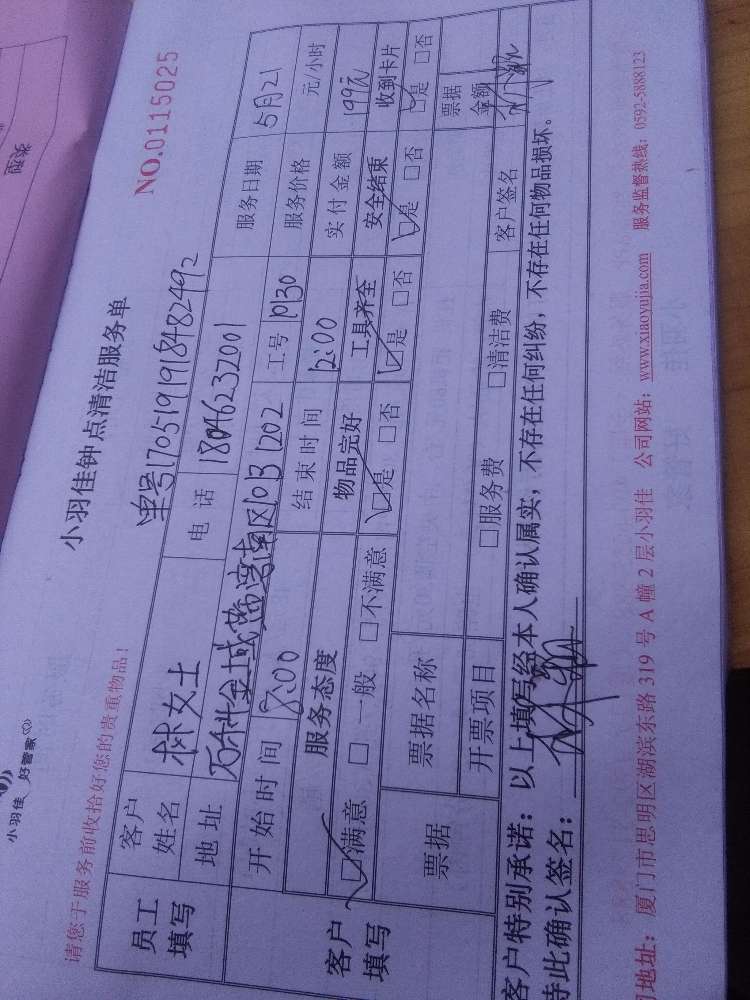 小羽佳 好管家
小羽佳钟点清洁服务单
NO.0115025
请您于服务前收拾好您的贵重物品!
单号1705191918482492
员工填写
客户姓名 林女士 电话 18046232001 服务日期 5月21
地址 万科金域 南区 1013 1202 工号 10130 服务价格 元/小时
开始时间 8:00 结束时间 12:00 实付金额 199元
客户填写
服务态度 物品完好 工具齐全 安全结束 收到卡片
□满意 □一般 □不满意 □是 □否 □是 □否 □是 □否 □是 □否
票据 票据名称 票据金额
开票项目 □服务费 □清洁费 客户签名
客户特别承诺:以上填写经本人确认属实,不存在任何纠纷,不存在任何物品损坏。
特此确认签名:
地址:厦门市思明区湖滨东路 319 号 A 幢 2 层小羽佳 公司网站:www.xiaoyujia.com 服务监督热线:0592-5888123